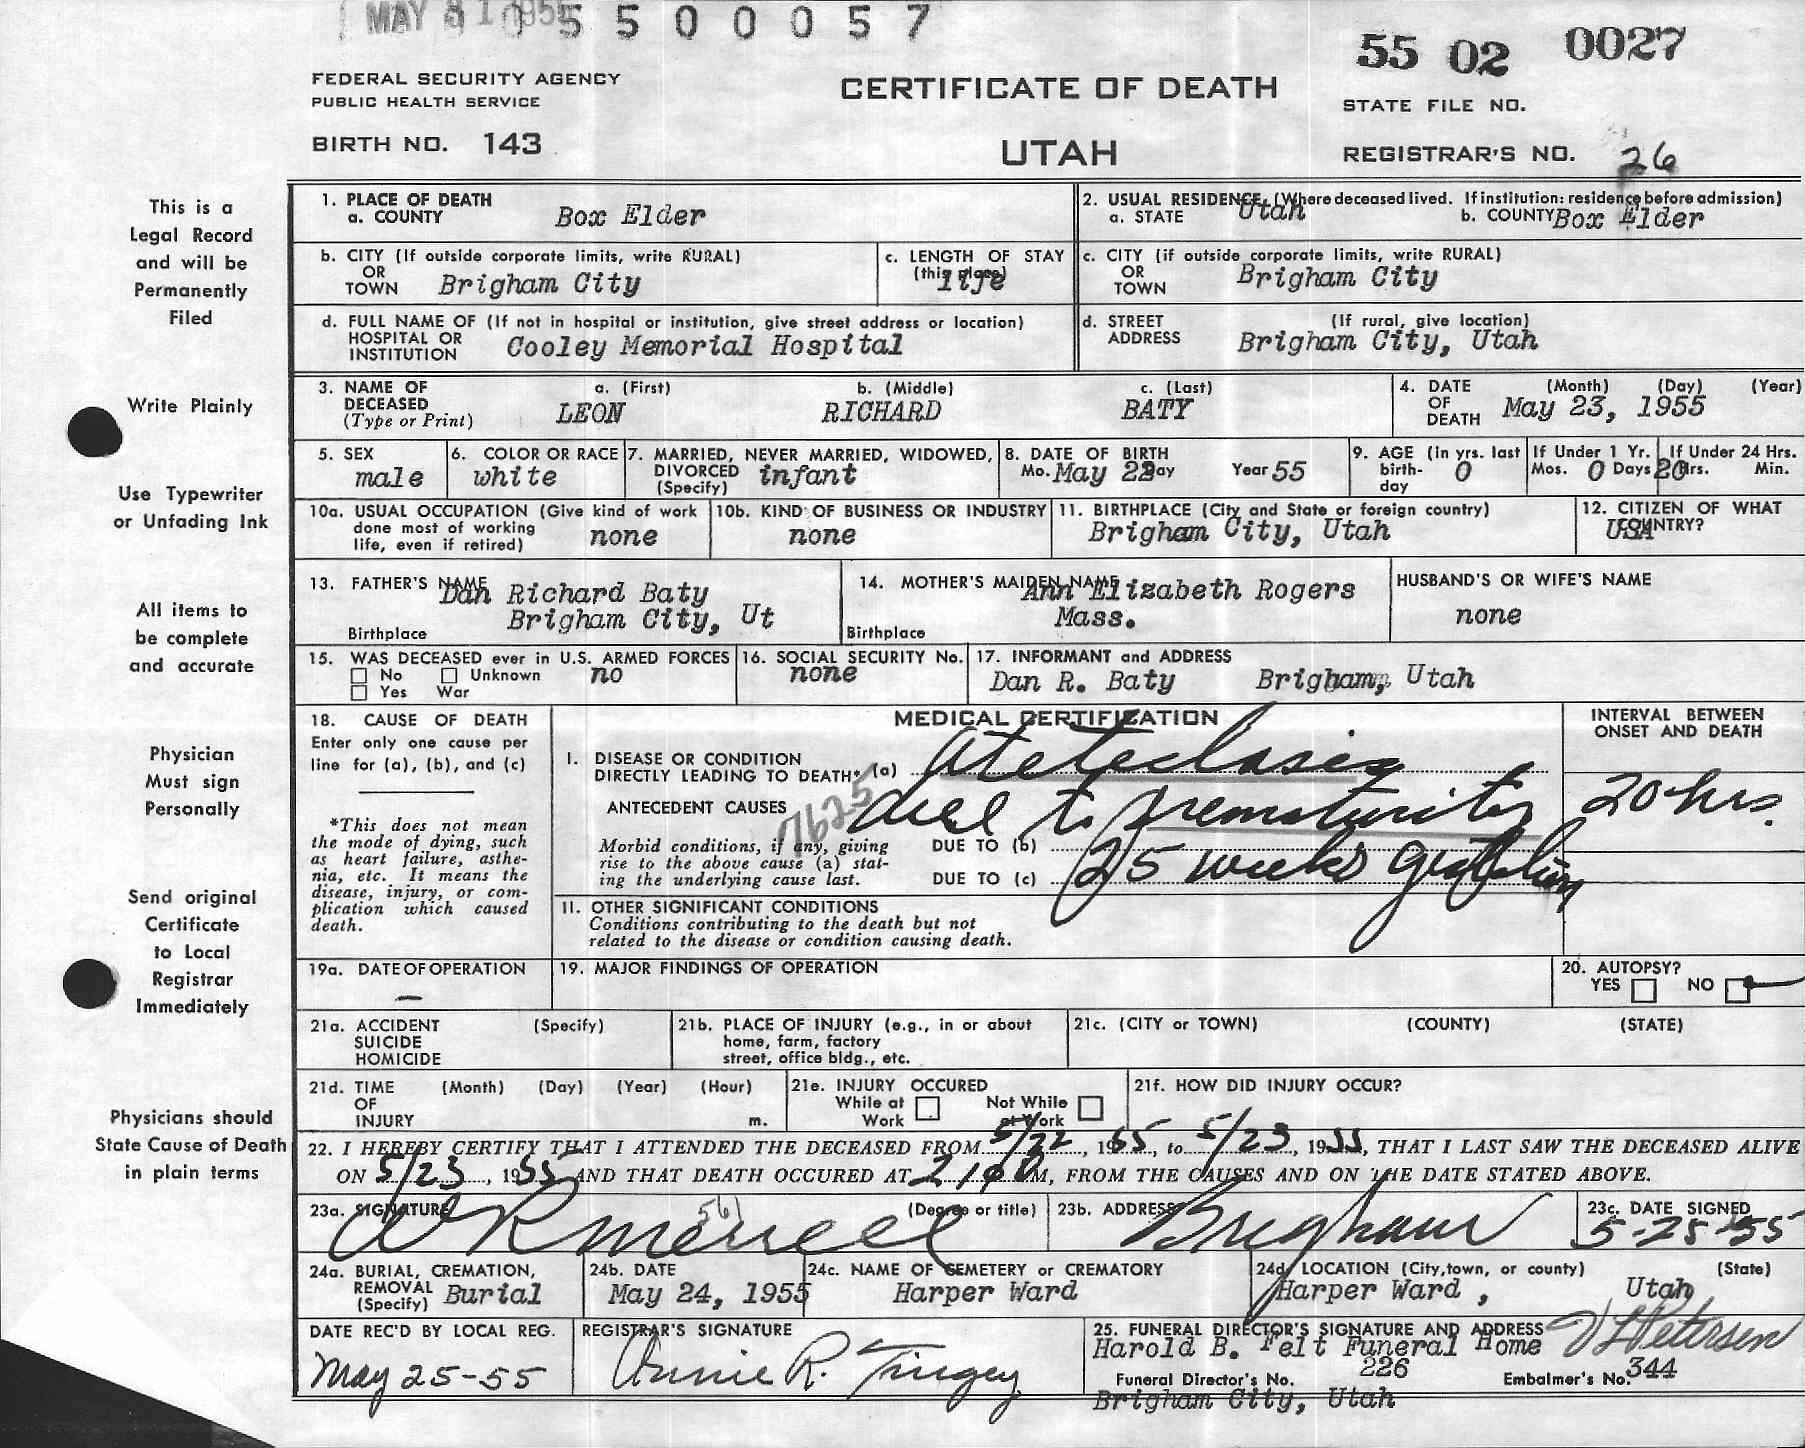 MAY 31 1955 5 5 0 0 0 5 7
55 02 0027
FEDERAL SECURITY AGENCY
PUBLIC HEALTH SERVICE
CERTIFICATE OF DEATH
STATE FILE NO.
BIRTH NO. 143
UTAH
REGISTRAR'S NO. 26
This is a
Legal Record
and will be
Permanently
Filed
Write Plainly
Use Typewriter
or Unfading Ink
All items to
be complete
and accurate
Physician
Must sign
Personally
Send original
Certificate
to Local
Registrar
Immediately
Physicians should
State Cause of Death
in plain terms
1. PLACE OF DEATH
a. COUNTY Box Elder
2. USUAL RESIDENCE (Where deceased lived. If institution: residence before admission)
a. STATE Utah b. COUNTY Box Elder
b. CITY (If outside corporate limits, write RURAL)
OR
TOWN Brigham City
c. LENGTH OF STAY
(this place)
life
c. CITY (if outside corporate limits, write RURAL)
OR
TOWN Brigham City
d. FULL NAME OF (If not in hospital or institution, give street address or location)
HOSPITAL OR
INSTITUTION Cooley Memorial Hospital
d. STREET (If rural, give location)
ADDRESS Brigham City, Utah
3. NAME OF a. (First) b. (Middle) c. (Last)
DECEASED
(Type or Print) LEON RICHARD BATY
4. DATE (Month) (Day) (Year)
OF
DEATH May 23, 1955
5. SEX
male
6. COLOR OR RACE
white
7. MARRIED, NEVER MARRIED, WIDOWED,
DIVORCED infant
(Specify)
8. DATE OF BIRTH
Mo. May 22 Day Year 55
9. AGE (in yrs. last
birth-
day 0
If Under 1 Yr.
Mos. 0 Days
If Under 24 Hrs.
20 Hrs. Min.
10a. USUAL OCCUPATION (Give kind of work
done most of working
life, even if retired) none
10b. KIND OF BUSINESS OR INDUSTRY
none
11. BIRTHPLACE (City and State or foreign country)
Brigham City, Utah
12. CITIZEN OF WHAT
COUNTRY?
USA
13. FATHER'S NAME
Dan Richard Baty
Brigham City, Ut
Birthplace
14. MOTHER'S MAIDEN NAME
Ann Elizabeth Rogers
Mass.
Birthplace
HUSBAND'S OR WIFE'S NAME
none
15. WAS DECEASED ever in U.S. ARMED FORCES
No Unknown no
Yes War
16. SOCIAL SECURITY No.
none
17. INFORMANT and ADDRESS
Dan R. Baty Brigham, Utah
18. CAUSE OF DEATH
Enter only one cause per
line for (a), (b), and (c)
*This does not mean
the mode of dying, such
as heart failure, asthe-
nia, etc. It means the
disease, injury, or com-
plication which caused
death.
MEDICAL CERTIFICATION
I. DISEASE OR CONDITION
DIRECTLY LEADING TO DEATH* (a) Ateteclasis
ANTECEDENT CAUSES 7625 due to prematurity
Morbid conditions, if any, giving DUE TO (b)
rise to the above cause (a) stat-
ing the underlying cause last. DUE TO (c) 25 weeks gestation
INTERVAL BETWEEN
ONSET AND DEATH
20 hrs.
II. OTHER SIGNIFICANT CONDITIONS
Conditions contributing to the death but not
related to the disease or condition causing death.
19a. DATE OF OPERATION
—
19. MAJOR FINDINGS OF OPERATION
20. AUTOPSY?
YES NO
21a. ACCIDENT (Specify)
SUICIDE
HOMICIDE
21b. PLACE OF INJURY (e.g., in or about
home, farm, factory
street, office bldg., etc.
21c. (CITY or TOWN) (COUNTY) (STATE)
21d. TIME (Month) (Day) (Year) (Hour)
OF
INJURY m.
21e. INJURY OCCURED
While at Work Not While at Work
21f. HOW DID INJURY OCCUR?
22. I HEREBY CERTIFY THAT I ATTENDED THE DECEASED FROM 5/22, 1955, to 5/23, 1955, THAT I LAST SAW THE DECEASED ALIVE
ON 5/23, 1955 AND THAT DEATH OCCURED AT M, FROM THE CAUSES AND ON THE DATE STATED ABOVE.
23a. SIGNATURE (Degree or title)
W R Merrell 561
23b. ADDRESS
Brigham
23c. DATE SIGNED
5-25-55
24a. BURIAL, CREMATION,
REMOVAL
(Specify) Burial
24b. DATE
May 24, 1955
24c. NAME OF CEMETERY or CREMATORY
Harper Ward
24d. LOCATION (City, town, or county) (State)
Harper Ward, Utah
DATE REC'D BY LOCAL REG.
May 25-55
REGISTRAR'S SIGNATURE
Annie R. Tingey
25. FUNERAL DIRECTOR'S SIGNATURE AND ADDRESS
Harold B. Felt Funeral Home Petersen
226
Funeral Director's No. Embalmer's No. 344
Brigham City, Utah